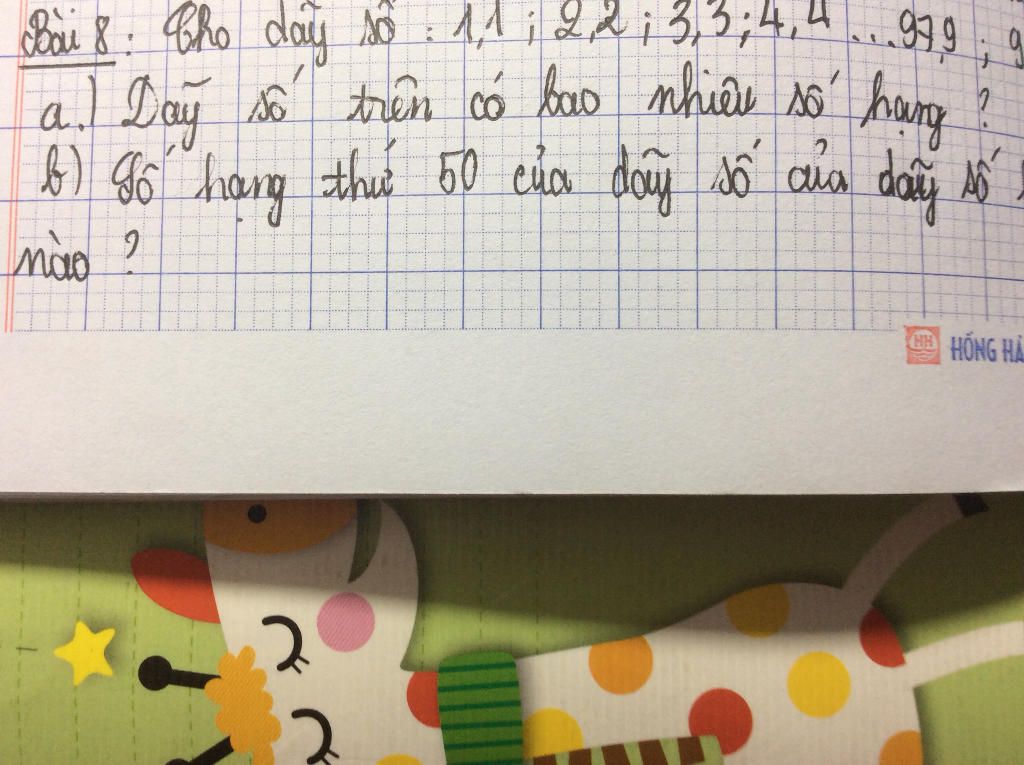 Bài 8: Cho dãy số: 1,1; 2,2; 3,3; 4,4 ...97,9; 9
a.) Dãy số trên có bao nhiêu số hạng?
b) Số hạng thứ 50 của dãy số của dãy số
nào?
HH
HỒNG HÀ